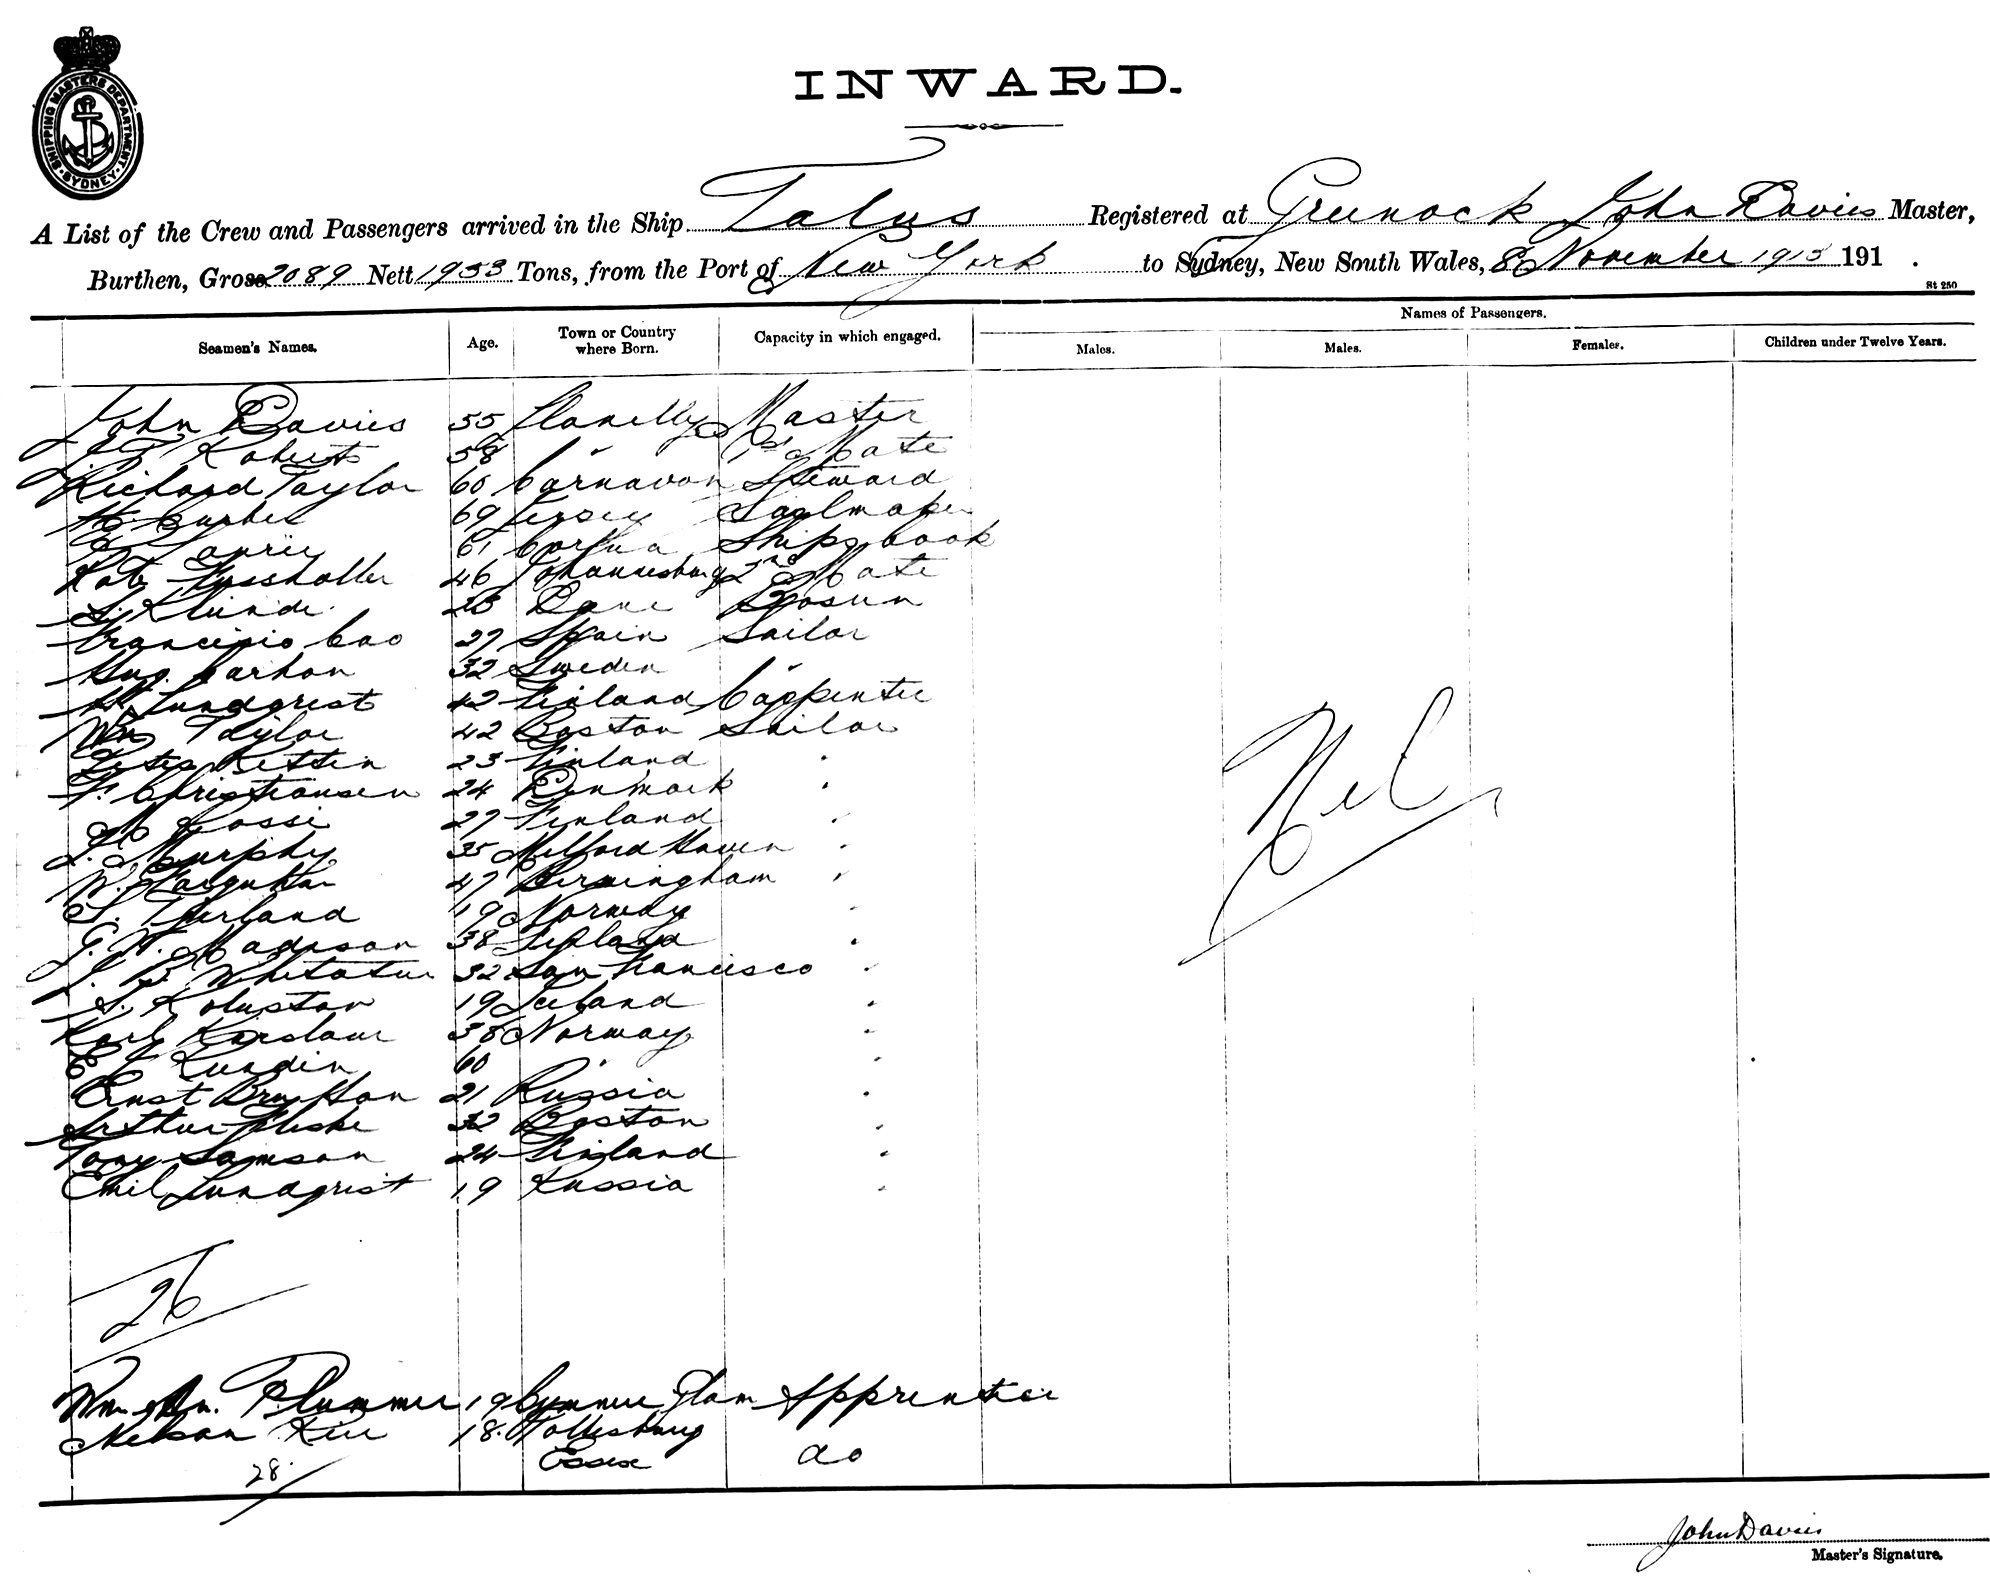 SHIPPING MASTERS DEPARTMENT
SYDNEY
INWARD.
A List of the Crew and Passengers arrived in the Ship Talus Registered at Greenock John Davies Master,
Burthen, Gross 2089 Nett 1933 Tons, from the Port of New York to Sydney, New South Wales, 8 November 1915 191 .
St 250
Names of Passengers.
Seamen's Names. Age. Town or Country where Born. Capacity in which engaged. Males. Males. Females. Children under Twelve Years.
John Davies 55 Llanelly Master
Roberts 58 " 1st Mate
Richard Taylor 60 Carnavon Steward
69 Jersey Sailmaker
61 Ships Cook
46 Johannesburg 2nd Mate
28 Dane Bosun
Francisco Cao 27 Spain Sailor
32 Sweden "
Lundqrist 42 Finland Carpenter
Wm Taylor 42 Boston Sailor
Peter 23 Finland "
F. Christiansen 24 Denmark "
Kossi 27 Finland "
J. Murphy 35 Milford Haven "
W. 47 Birmingham "
S. 19 Norway "
G. H. Madison 38 "
J. 32 San Francisco "
S. 19 "
Karl 38 Norway "
Lundin 60 " "
Ernst 21 Russia "
Arthur 32 Boston "
Tony Samson 24 Finland "
Emil Lundqrist 19 Russia "
Nil
26
Wm Plummer 19 Glam Apprentice
Nelson 18. Tollesbury
Essex do
28
John Davies
Master's Signature.